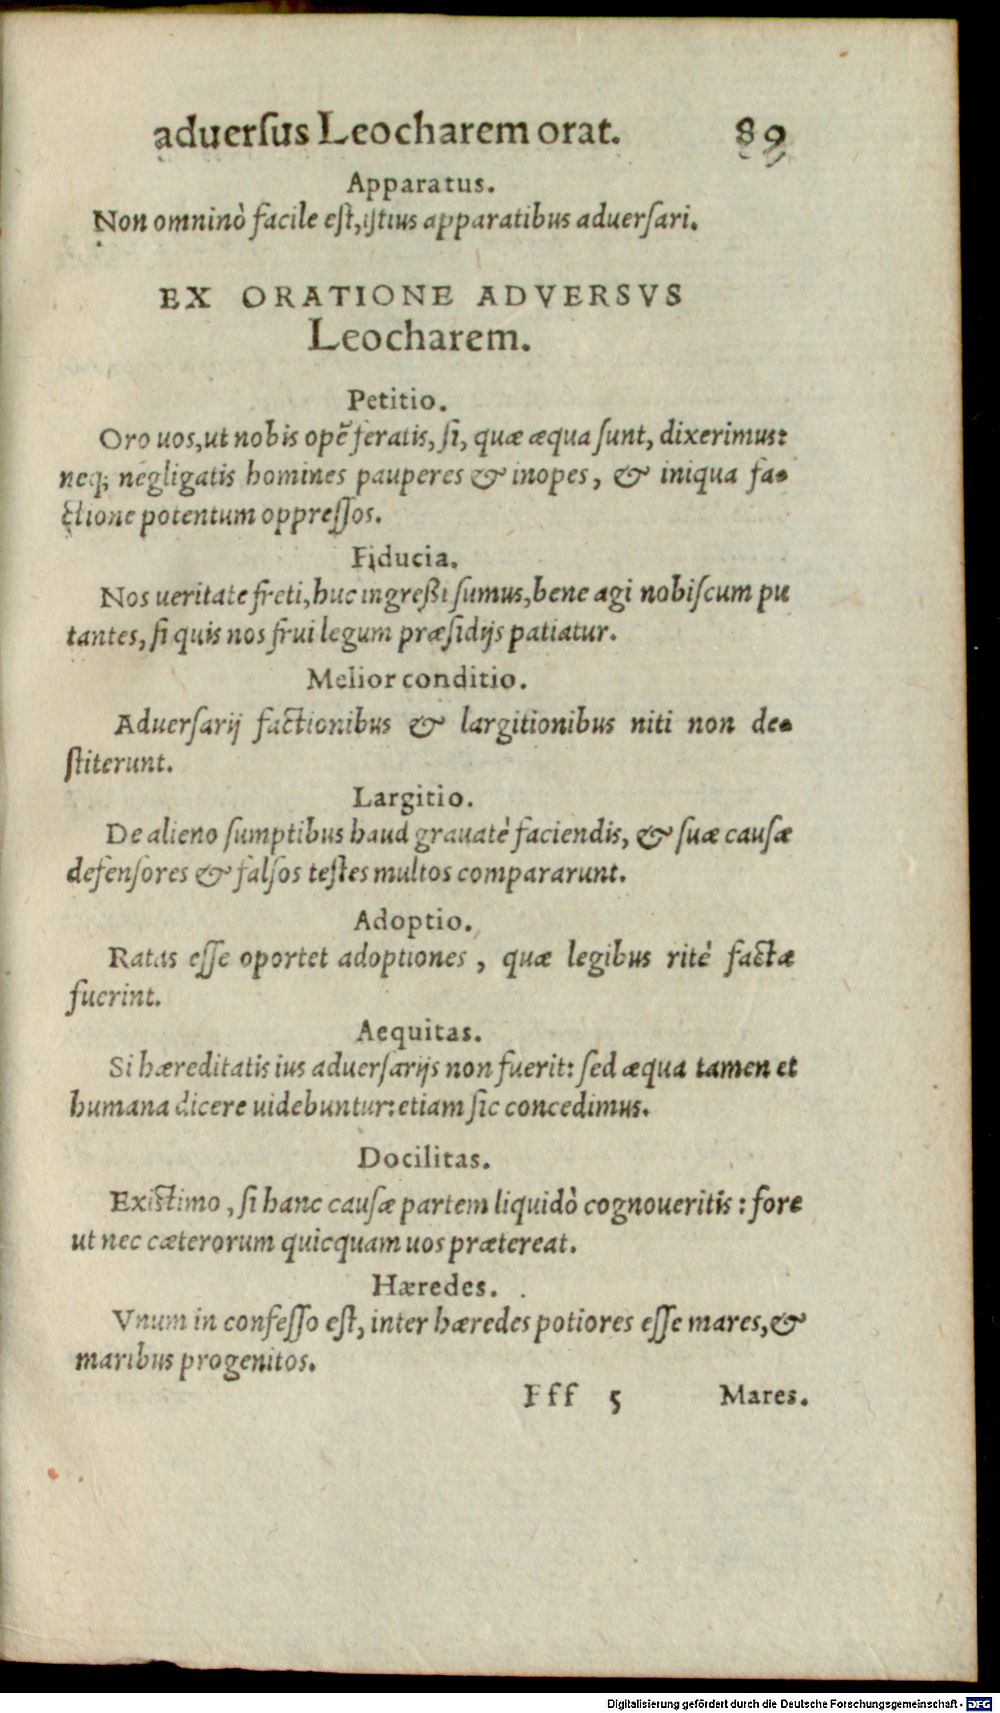 aduersus Leocharem orat. 89
Apparatus.
Non omninò facile est, istius apparatibus aduersari.
EX ORATIONE ADVERSVS
Leocharem.
Petitio.
Oro uos, ut nobis opẽ feratis, si, quæ æqua sunt, dixerimus:
neq; negligatis homines pauperes & inopes, & iniqua fa-
ctione potentum oppressos.
Fiducia.
Nos ueritate freti, huc ingreßi sumus, bene agi nobiscum pu
tantes, si quis nos frui legum præsidijs patiatur.
Melior conditio.
Aduersarij factionibus & largitionibus niti non de-
stiterunt.
Largitio.
De alieno sumptibus haud grauatè faciendis, & suæ causæ
defensores & falsos testes multos compararunt.
Adoptio.
Ratas esse oportet adoptiones, quæ legibus ritè factæ
fuerint.
Aequitas.
Si hæreditatis ius aduersarijs non fuerit: sed æqua tamen et
humana dicere uidebuntur: etiam sic concedimus.
Docilitas.
Existimo, si hanc causæ partem liquidò cognoueritis: fore
ut nec cæterorum quicquam uos prætereat.
Hæredes.
Vnum in confesso est, inter hæredes potiores esse mares, &
maribus progenitos.
Fff 5 Mares.
Digitalisierung gefördert durch die Deutsche Forschungsgemeinschaft - DFG